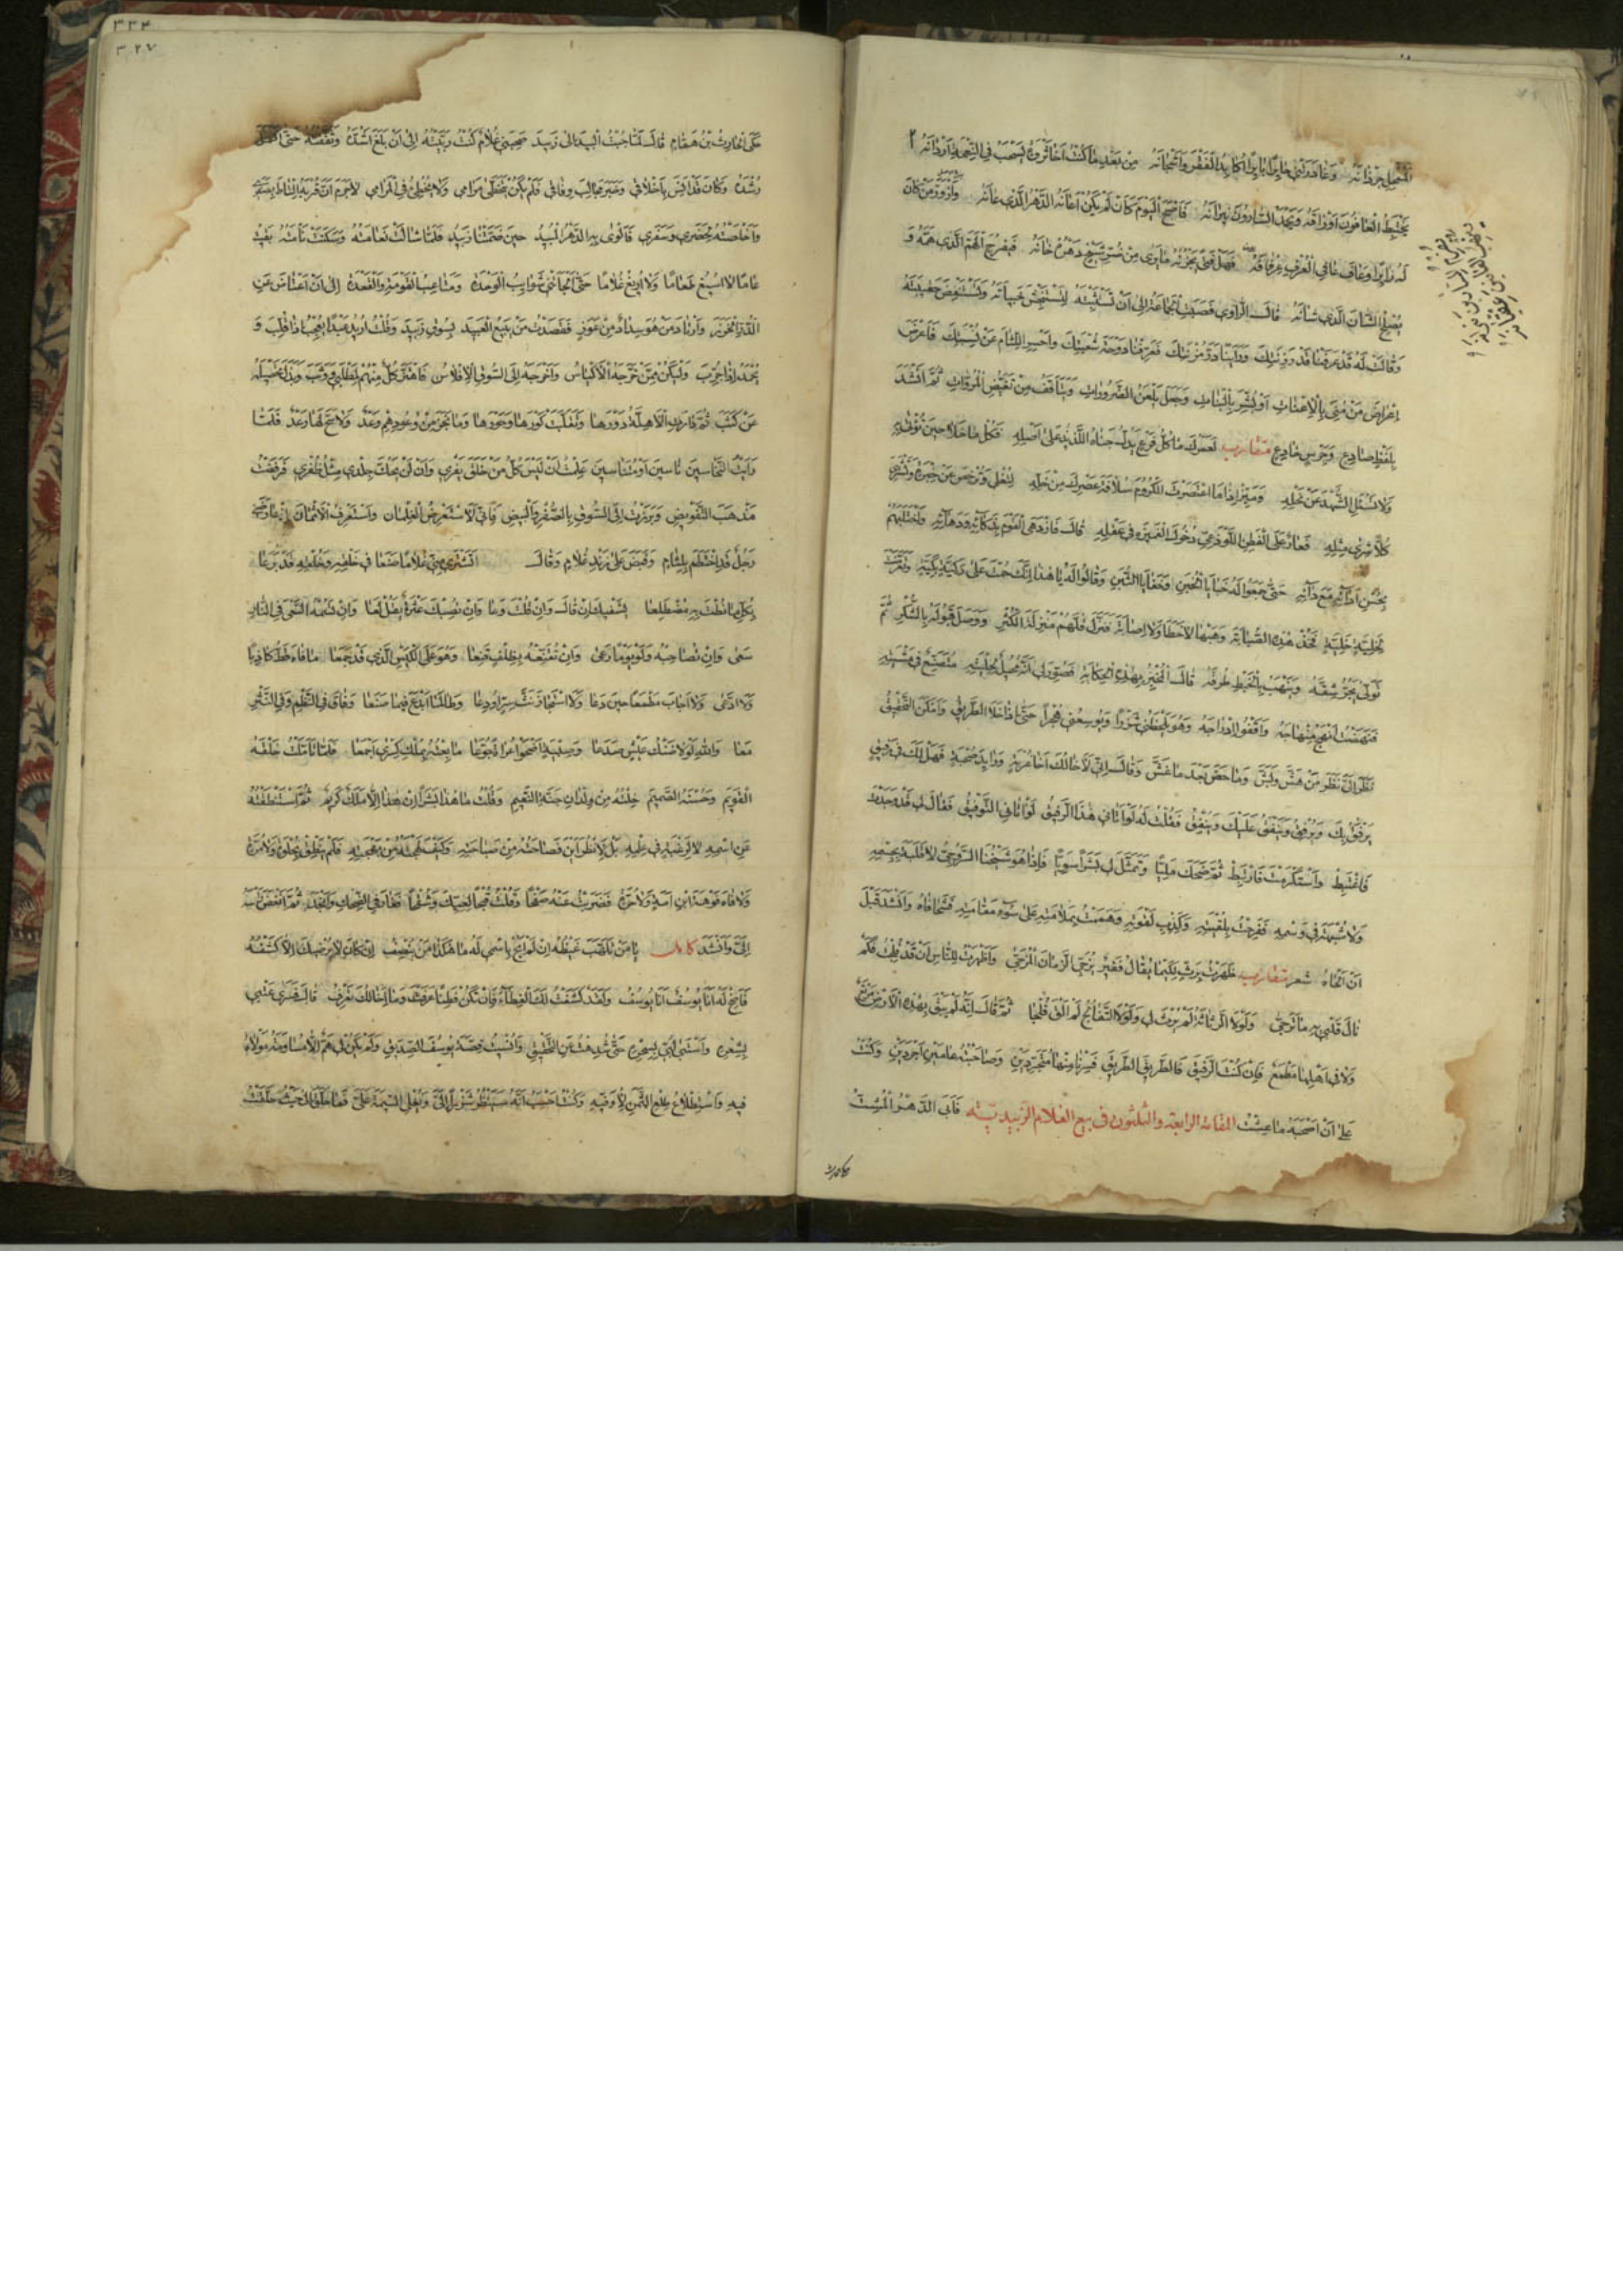 المنحل جرذانه وغادرتني حايرا بايرا اكابد الفقر واشجانه من بعد ما كنت اخا ثروة يسحب في النعمة اردانه
يختبط العافون اوراقه ويحمد السارون نيرانه فاصبح اليوم كان لم يكن اعانه الدهر الذي عانه وازور من كان
له زايرا وعاف عافي العرف عرفانه فهل فتى يحزنه ما يرى من ضر شيخ دهره خانه فيفرج الهم الذي همه و
يصلح الشان الذي شانه قال الراوي فصبت الجماعة الى ان تستثبته لتستنجش خبأته وتستنفض حقيبته
وقالت له قد عرفنا قدر رتبتك وراينا در مزنتك فعرفنا دوحة شعبتك واحسر اللثام عن نسبتك فاعرض
اعراض من مني بالاعنات او بشر بالبنات وجعل يلعن الضرورات ويتأفف من تغيض المروات ثم انشد
بلفظ صادع وجرس خادع متقارب لعمرك ما كل فرع يدل جناه اللذيذ على اصله فكل ما حلا حين تؤتى به
ولا تسئل الشهد عن نحله وميز اذا ما اعتصرت الكروم سلافة عصرك من خله لتغلي وترخص عن خبرة وتشري
كلا شرى مثله فعار على الفطن اللوذعي دخول الغميزة في عقله قال فازدهى القوم بذكائه ودهائه واختلبهم
بحسن ادائه مع دائه حتى جمعوا له خبايا الخبن وخفايا الثبن وقالوا له يا هذا انك حمت على ركية بكية وتعرضت
لخلية خلية فخذ هذه الصبابة وهبها لا خطا ولا اصابة فنزل قلهم منزلة الكثر ووصل قبوله بالشكر ثم
تولى يجر شقه وينهب بالخبط طرقه قال المخبر بهذه الحكاية فصور لي انه محيل لحليته متصنع في مشيته
فنهضت انهج منهاجه واقفو ادراجه وهو يلحظني شزرا ويوسعني هجرا حتى اذا خلا الطريق وامكن التحقيق
نظر الي نظر من هش وبش وماحض بعد ما غش وقال اني لاخالك اخا غربة ورايد صحبة فهل لك في رفيق
يرفق بك ويرفق وينفق عليك وينفق فقلت له لو اتاني هذا الرفيق لواتاني التوفيق فقال لي قد وجدت
فاغتبط واستكرمت فارتبط ثم ضحك مليا وتمثل لي بشرا سويا فاذا هو شيخنا السروجي لا قلبة بجسمه
ولا شبهة في وسمه ففرحت بلقيته وكذب لقوته وهممت بملامته على سوء مقامته فشحا فاه وانشد قبل
ان الحاه شعر متقارب ظهرت برث لكيما يقال فقير يزجي الزمان المزجى واظهرت للناس ان قد فلجت فكم
نال قلبي به ما ترجى ولولا الرثاثة لم يرث لي ولولا التفالج لم الق فلجا ثم قال انه لم يبق بهذه الارض مرتع
ولا في اهلها مطمع فان كنت الرفيق فالطريق الطريق فسرنا منها متجردين وصاحبته عامين اجردين وكنت
على ان اصحبه ما عشت فابى الدهر المشت المقامة الرابعة والثلثون في بيع الغلام الزبيدية
حكى الحارث
حكى الحارث بن همام قال لما جبت البيد الى زبيد صحبني غلام كنت ربيته الى ان بلغ اشده وثقفته حتى اكمل
رشده وكان قد انس باخلاقي وخبر مجالب وفاقي فلم يكن يتخطى مرامي ولا يخطئ في المرامي لا جرم ان قربه التاط بصفري
واخلصته لحضري وسفري فالوى به الدهر المبيد حين ضمتنا زبيد فلما شالت نعامته وسكنت نامته بقيت
عاما لا اسيغ طعاما ولا اريغ غلاما حتى الجأتني شوايب الوحدة ومتاعب القومة والقعدة الى ان اعتاض عن
الدر الخرز وارتاد من هو سداد من عوز فقصدت من يبيع العبيد بسوق زبيد وقلت اريد عبدا يعجب اذا قلب و
يحمد اذا جرب وليكن ممن خرجه الاكياس واخرجه الى السوق الافلاس فاهتز كل منهم لمطلبي ووثب وبذل تحصيله
عن كثب ثم دارت الاهلة دورها وتقلبت كورها وحورها وما نجز من وعودهم وعد ولا سح لها رعد فلما
رايت النخاسين ناسين او متناسين علمت ان ليس كل من خلق يفري وان لن يحك جلدي مثل ظفري فرفضت
مذهب التفويض وبرزت الى السوق بالصفر والبيض فاني لاستعرض الغلمان واستعرف الاثمان اذ عارضني
رجل قد اختطم بلثام وقبض على زند غلام وقال من يشتري مني غلاما صنعا في خلقه وخلقه قد برعا
بكل ما نطت به مضطلعا يشفيك ان قال وان قلت وعا وان تصبك عثرة يقل لعا وان تسمه السعي في النار
سعى وان تصاحبه ولو يوما رعى وان تقنعه بظلف قنعا وهو على الكيس الذي قد جمعا ما فاه قط كاذبا
ولا ادعى ولا اجاب مطمعا حين دعا ولا استجاز نث سر اودعا وطالما ابدع فيما صنعا وفاق في النظم وفي النثر
معا والله لولا ضنك عيش صدعا وصبية اضحوا عراة جوعا ما بعته بملك كسرى اجمعا فلما تاملت خلقه
القويم وحسنه الصميم خلته من ولدان جنة النعيم وقلت ما هذا بشرا ان هذا الا ملك كريم ثم استنطقته
عن اسمه لا لرغبة في علمه بل لانظر اين فصاحته من صباحته وكيف لهجته من بهجته فلم ينطق بحلوة ولا مرة
ولا فاه فوهة ابن امة ولا حرة فضربت عنه صفحا وقلت قبحا لعيك وشقحا فغار في الضحك وانجد ثم انغض راسه
الي وانشد كامل يا من تلهب غيظه ان لم ابح باسمي له ما هكذا من ينصف ان كان لا يرضيك الا كشفه
فاصخ له انا يوسف انا يوسف ولقد كشفت لك الغطاء فان تكن فطنا عرفت وما اخالك تعرف قال فسرى عتبي
بشعره واستبى لبي بسحره حتى شدهت عن التحقيق وانسيت قصة يوسف الصديق ولم يكن لي هم الا مساومة مولاه
فيه واستطلاع طلع الثمن لاوفيه وكنت احسب انه سينظر شزرا الي ويغلي السيمة علي فما حلق الى حيث حلقت